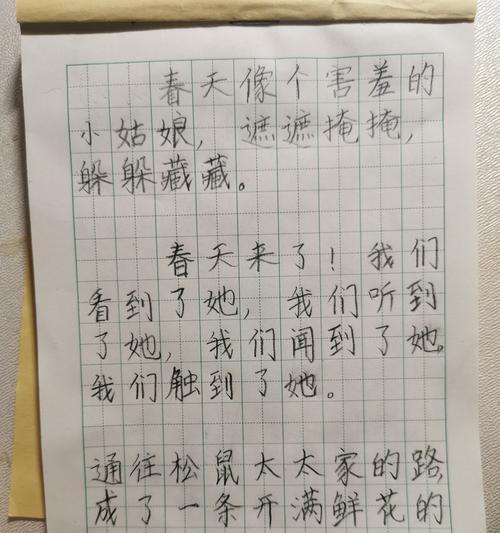 春天像个害羞的
小姑娘，遮遮掩掩，
躲躲藏藏。
春天来了！我们
看到了她，我们听到
了她，我们闻到了她，
我们触到了她。
通往松鼠太太家的路，
成了一条开满鲜花的